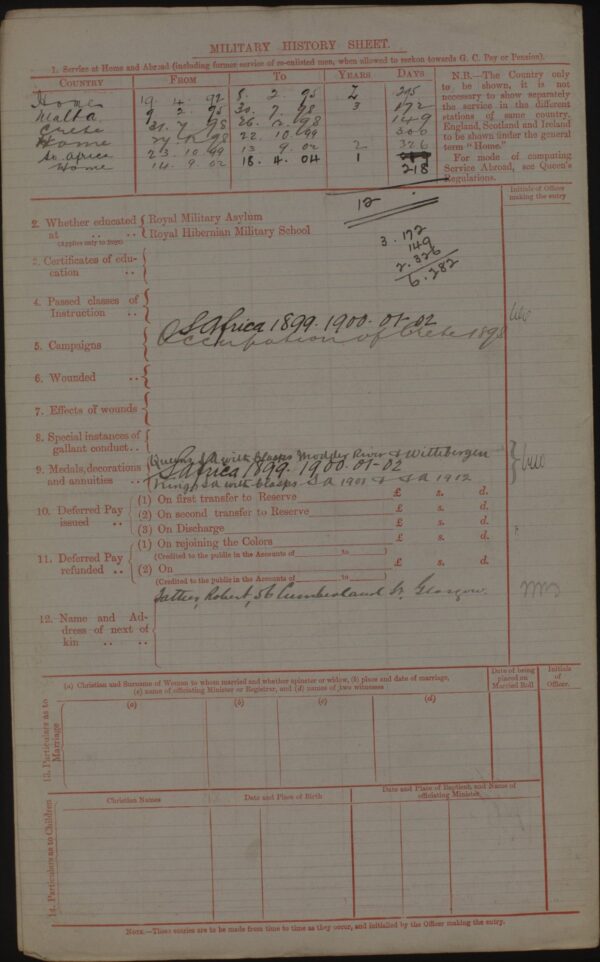 MILITARY HISTORY SHEET.
1. Service at Home and Abroad (including former service of re-enlisted men, when allowed to reckon towards G. C. Pay or Pension).
COUNTRY FROM TO YEARS DAYS
Home 19 . 4 . 92 8 . 2 . 95 2 295
Malta 9 . 2 . 95 30 . 7 . 98 3 172
Crete 31 . 7 . 98 26 . 12 . 98 149
Home 27 . 12 . 98 22 . 10 . 99 300
So. Africa 23 . 10 . 99 13 . 9 . 02 2 326
Home 14 . 9 . 02 18 . 4 . 04 1
218
12
N.B.—The Country only
to be shown, it is not
necessary to show separately
the service in the different
stations of same country.
England, Scotland and Ireland
to be shown under the general
term "Home."
For mode of computing
Service Abroad, see Queen's
Regulations.
Initials of Officer
making the entry
2. Whether educated at .. ..
(Applies only to Boys)
Royal Military Asylum
Royal Hibernian Military School
3 . 172
149
2 . 326
6 . 282
3. Certificates of edu-
cation ..
4. Passed classes of
Instruction ..
5. Campaigns
S Africa 1899 . 1900 . 01 - 02
Occupation of Crete 1898
6. Wounded ..
7. Effects of wounds
8. Special instances of
gallant conduct..
9. Medals, decorations
and annuities ..
Queens SA with Clasps Modder River & Wittebergen
S Africa 1899 . 1900 . 01 - 02
Kings SA with Clasps S A 1901 & S A 1902
10. Deferred Pay
issued ..
(1) On first transfer to Reserve £ s. d.
(2) On second transfer to Reserve £ s. d.
(3) On Discharge £ s. d.
11. Deferred Pay
refunded ..
(1) On rejoining the Colors £ s. d.
(Credited to the public in the Accounts of to )
(2) On £ s. d.
(Credited to the public in the Accounts of to )
12. Name and Ad-
dress of next of
kin .. ..
Father, Robert, 56 Cumberland St. Glasgow.
13. Particulars as to
Marriage
(a) Christian and Surname of Women to whom married and whether spinster or widow, (b) place and date of marriage,
(c) name of officiating Minister or Registrar, and (d) names of two witnesses
Date of being
placed on
Married Roll
Initials
of
Officer.
(a) (b) (c) (d)
14. Particulars as to Children
Christian Names Date and Place of Birth Date and Place of Baptism, and Name of
officiating Minister
NOTE.—These entries are to be made from time to time as they occur, and initialled by the Officer making the entry.